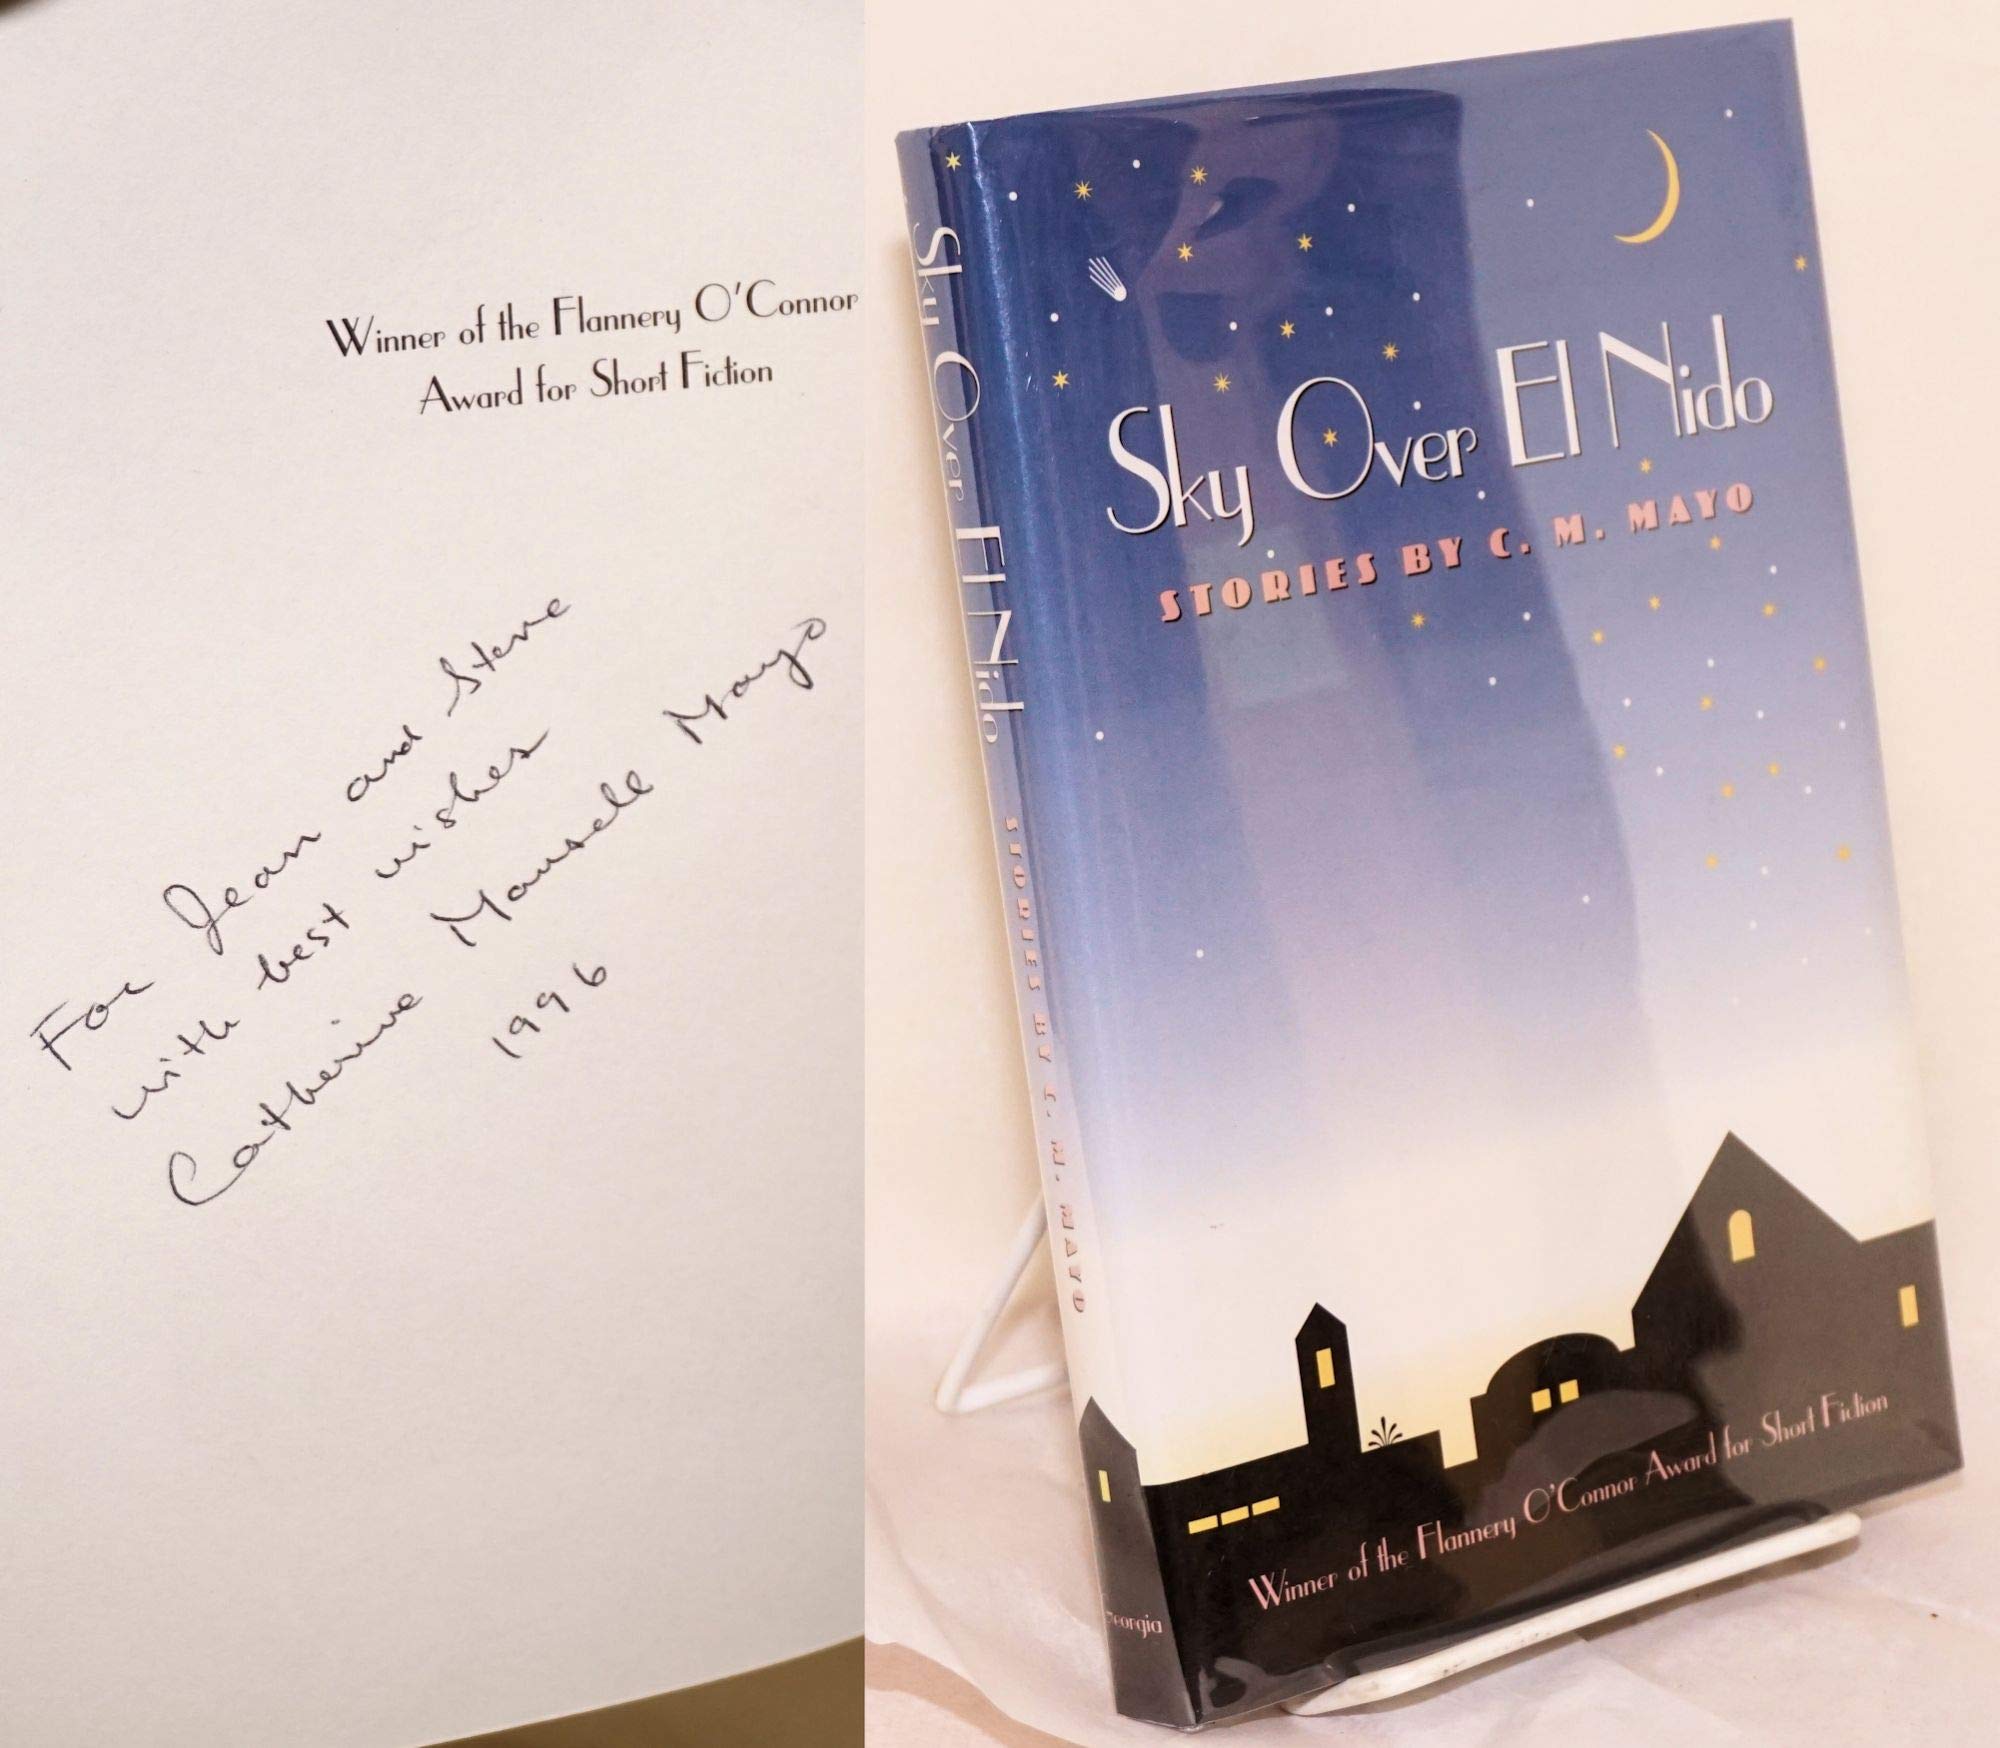 Winner of the Flannery O'Connor
Award for Short Fiction
For Jean and Steve
with best wishes
Catherine Mansell Mayo
1996
Sky Over El Nido
STORIES BY C. M. MAYO
Georgia
Sky Over El Nido
STORIES BY C. M. MAYO
Winner of the Flannery O'Connor Award for Short Fiction